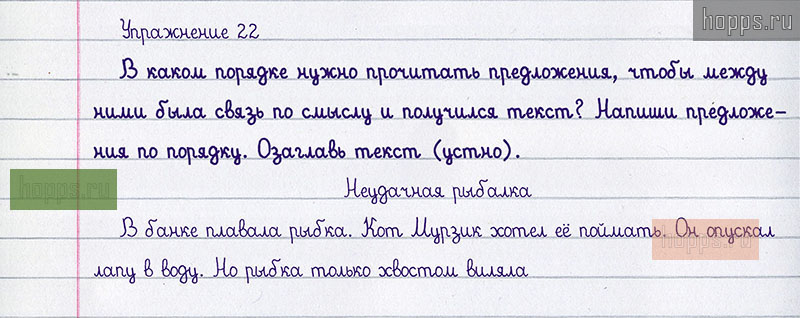 hopps.ru
Упражнение 22
В каком порядке нужно прочитать предложения, чтобы между
ними была связь по смыслу и получился текст? Напиши предложе-
ния по порядку. Озаглавь текст (устно).
hopps.ru
Неудачная рыбалка
В банке плавала рыбка. Кот Мурзик хотел её поймать. Он опускал
hopps.ru
лапу в воду. Но рыбка только хвостом виляла